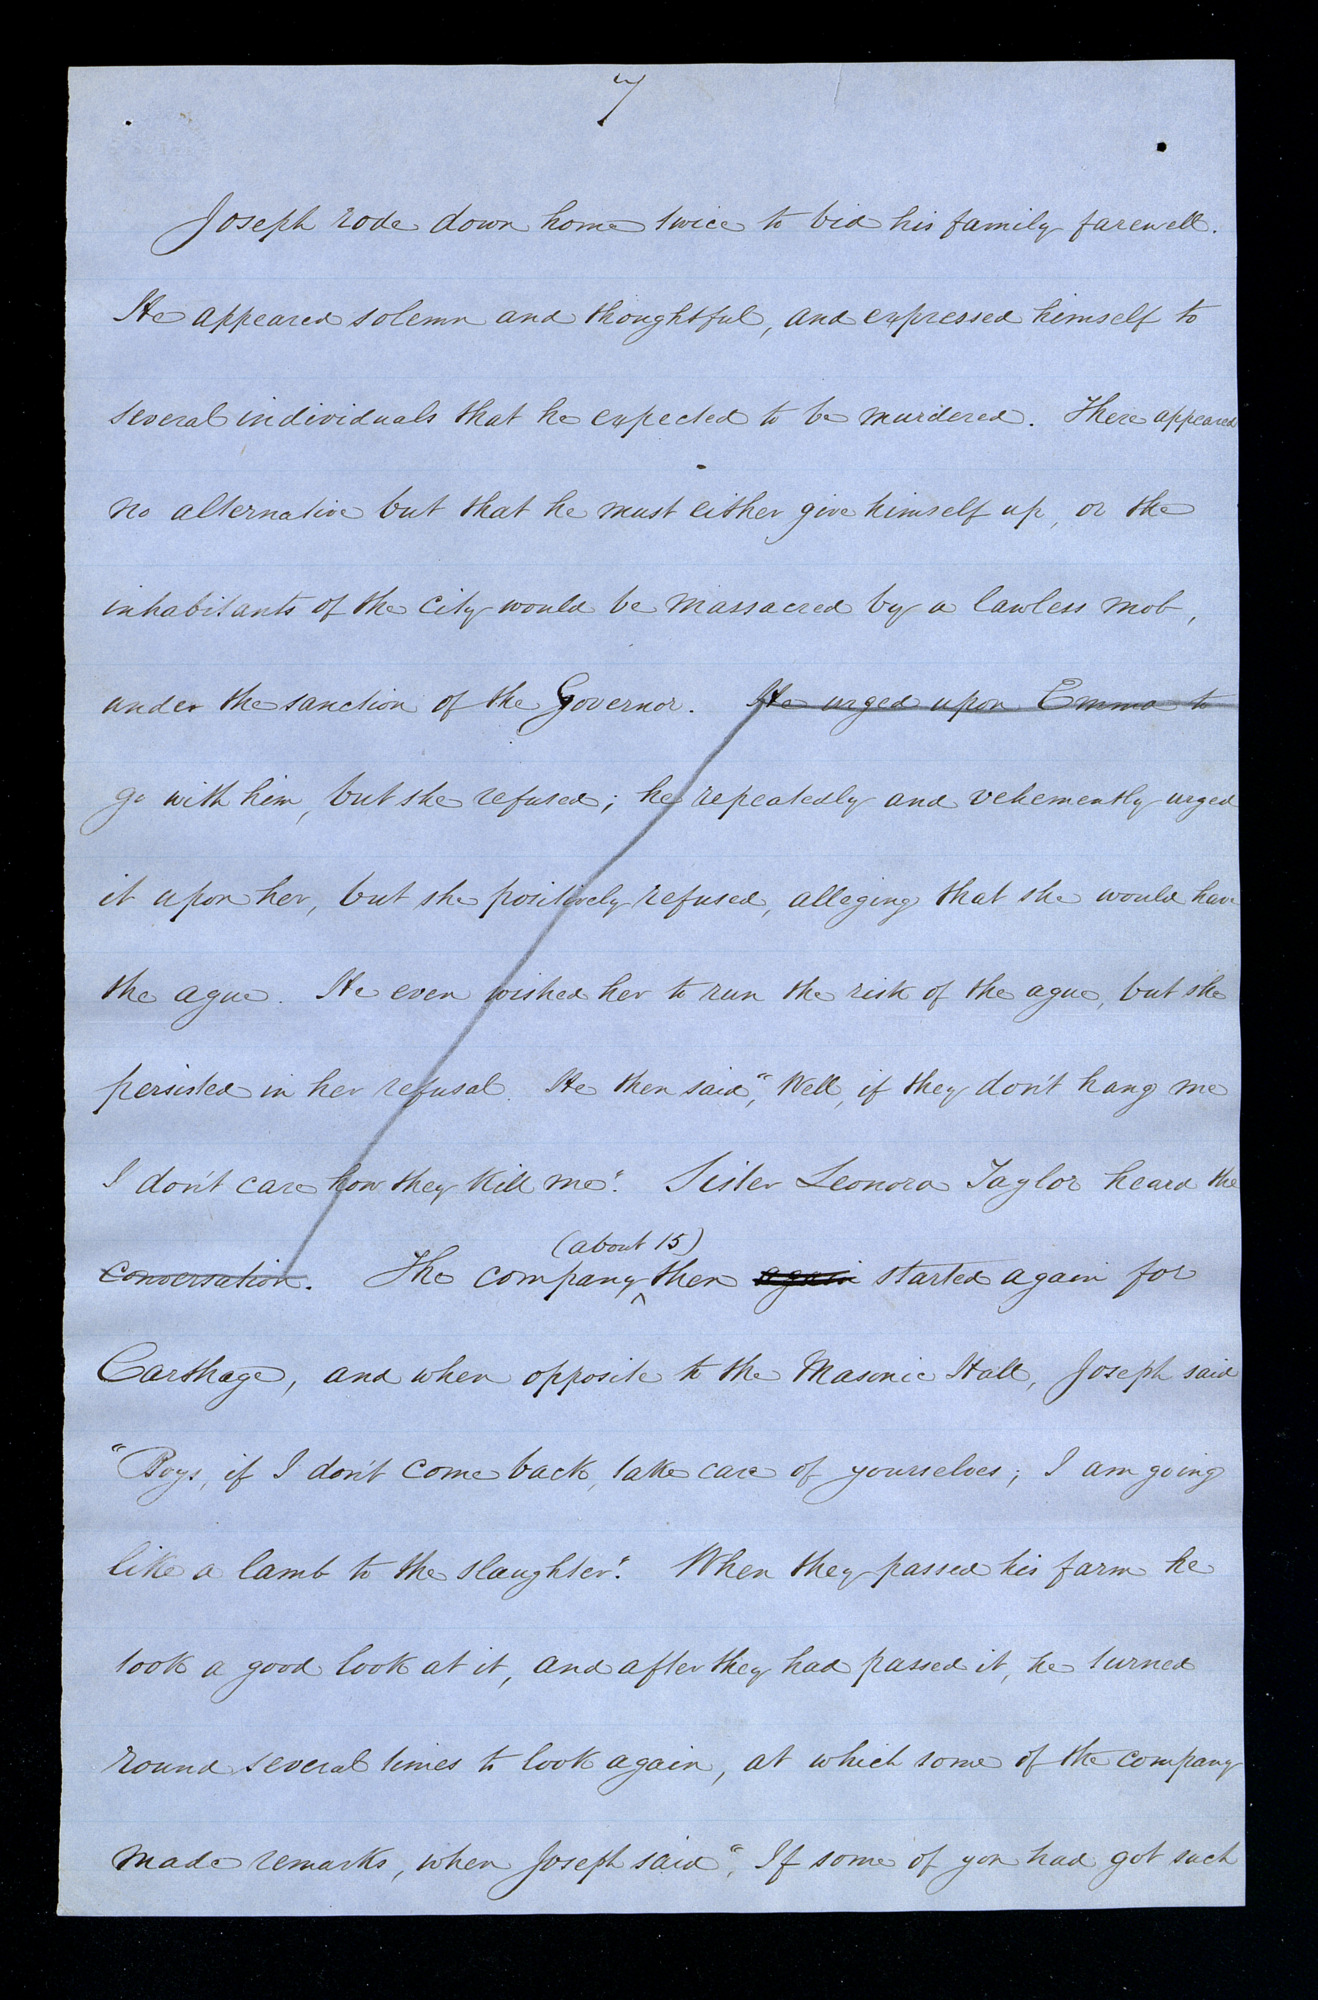 7
Joseph rode down home twice to bid his family farewell.
He appeared solemn and thoughtful, and expressed himself to
several individuals that he expected to be murdered. There appeared
no alternative but that he must either give himself up, or the
inhabitants of the city would be massacred by a lawless mob,
under the sanction of the Governor. He urged upon Emma to
go with him, but she refused; he repeatedly and vehemently urged
it upon her, but she positively refused, alleging that she would have
the ague. He even wished her to run the risk of the ague, but she
persisted in her refusal. He then said, "Well, if they don't hang me
I don't care how they kill me". Sister Leonora Taylor heard the
(about 15)
conversation. The company ^ then again started again for
Carthage, and when opposite to the Masonic Hall, Joseph said
"Boys, if I don't come back, take care of yourselves; I am going
like a lamb to the slaughter". When they passed his farm he
took a good look at it, and after they had passed it, he turned
round several times to look again, at which some of the company
made remarks, when Joseph said, "If some of you had got such